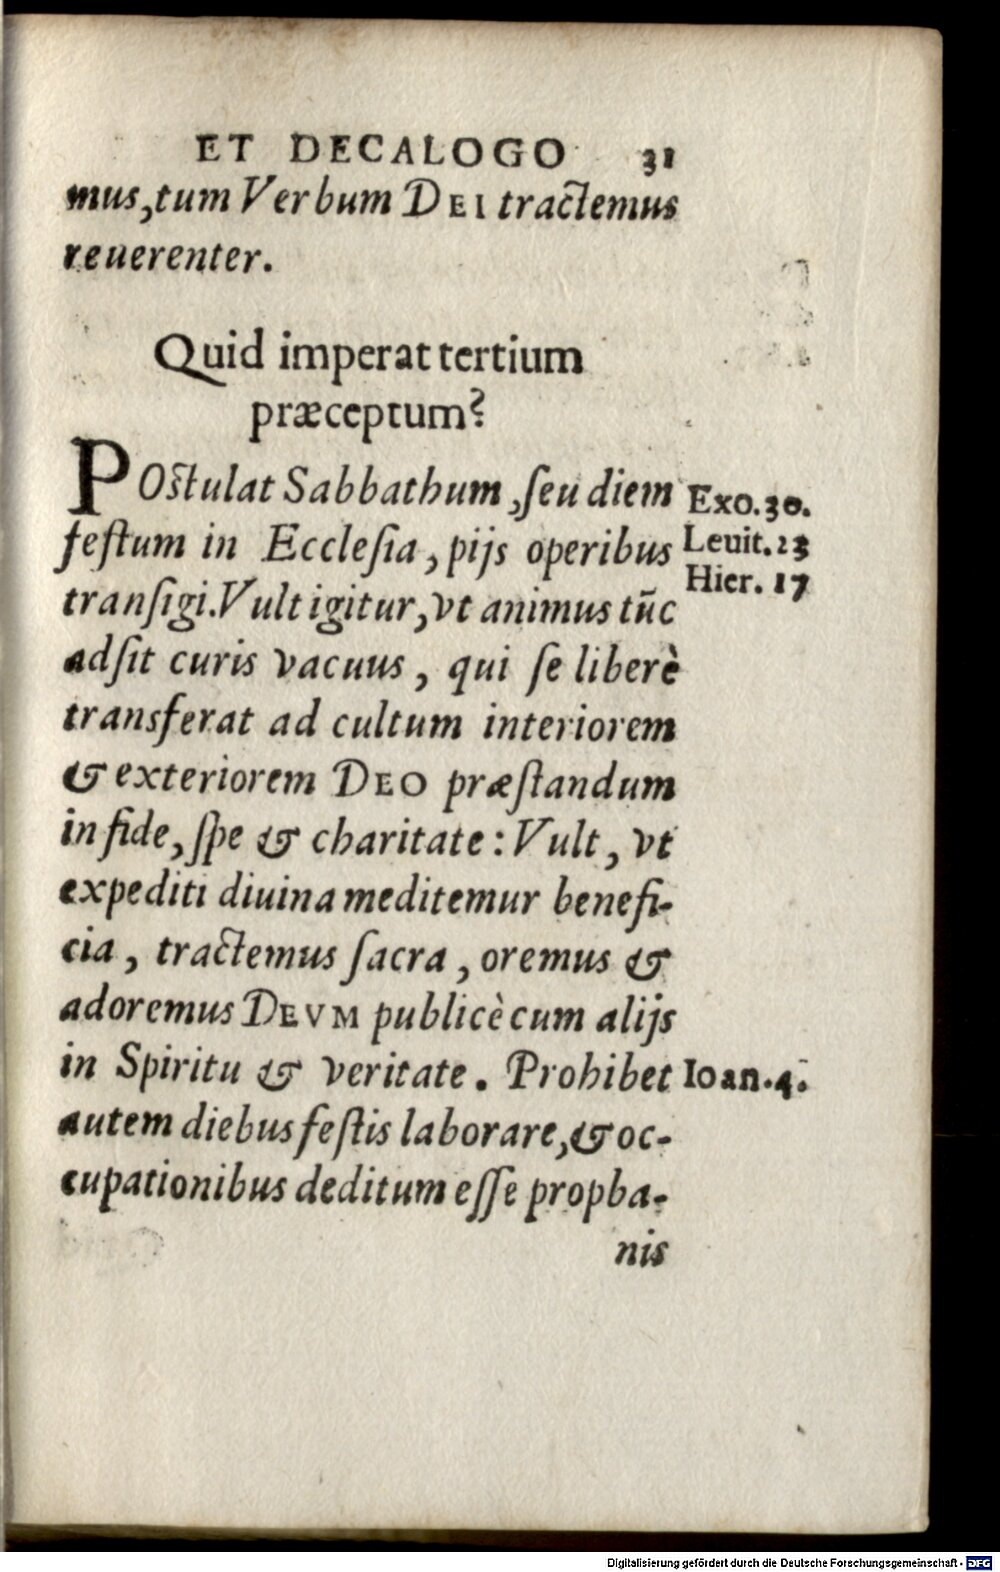 ET DECALOGO 31
mus, tum Verbum DEI tractemus
reuerenter.
Quid imperat tertium
præceptum?
POstulat Sabbathum, ſeu diem
feſtum in Eccleſia, pijs operibus
tranſigi. Vult igitur, vt animus tūc
adſit curis vacuus, qui ſe liberè
transferat ad cultum interiorem
& exteriorem DEO præſtandum
in fide, ſpe & charitate: Vult, vt
expediti diuina meditemur benefi-
cia, tractemus ſacra, oremus &
adoremus DEVM publicè cum alijs
in Spiritu & veritate. Prohibet
autem diebus feſtis laborare, & oc-
cupationibus deditum eſſe propha-
nis
Exo. 30.
Leuit. 23
Hier. 17
Ioan. 4.
Digitalisierung gefördert durch die Deutsche Forschungsgemeinschaft - DFG